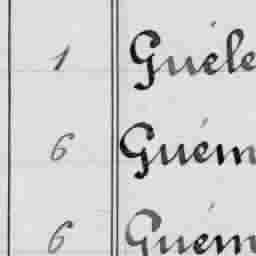 1 Guéle
6 Guém
6 Guém